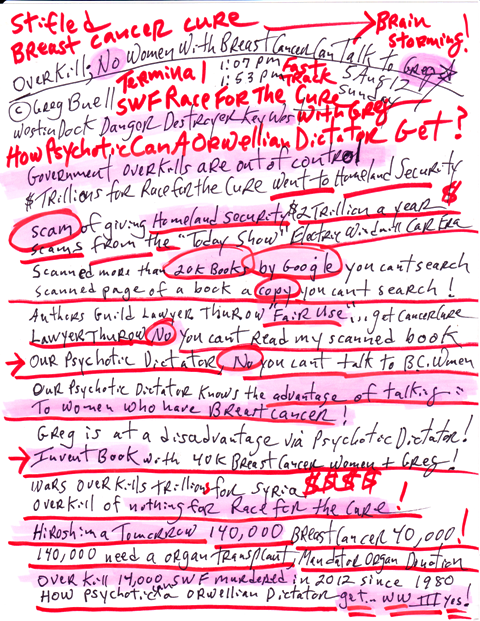 Stifled
Breast cancer cure → Brain Storming!
Overkills, No Women With Breast Cancer Can Talk to Greg
Terminal 1:07 pm Fast 5 Aug 12
1:53 pm Track Sunday
© Greg Buell SWF Race For The Cure With Greg
Westin Dock Danger Destroyer Key West
How Psychotic Can A Orwellian Dictator Get?
Government overkills are out of control
$ Trillions for Race for the Cure went to Homeland Security
Scam of giving Homeland Security $2 Trillion a year $
Scams from the "Today Show" Electric Windmill Car Era
Scanned more than 20K Books by Google you cant search
scanned page of a book a copy you cant search!
Authors Guild Lawyer Thurow "Fair Use"... get Cancer Cure
Lawyer Thurow No you cant Read my scanned book
→ Our Psychotic Dictator, No you cant talk to B.C. Women
Our Psychotic Dictator knows the advantage of talking
To women who have Breast Cancer!
Greg is at a disadvantage via Psychotic Dictator!
→ Invent Book with 40K Breast Cancer Women + Greg!
Wars overkills Trillions for Syria $$$$
overkill of nothing for Race for the Cure!
Hiroshima Tomorrow 140,000 Breast Cancer 40,000!
140,000 need a organ transplant, Mandator Organ Donation
Over kill 14,000 SWF murdered in 2012 since 1980
How psychotic can orwellian Dictator get... WW III yes!